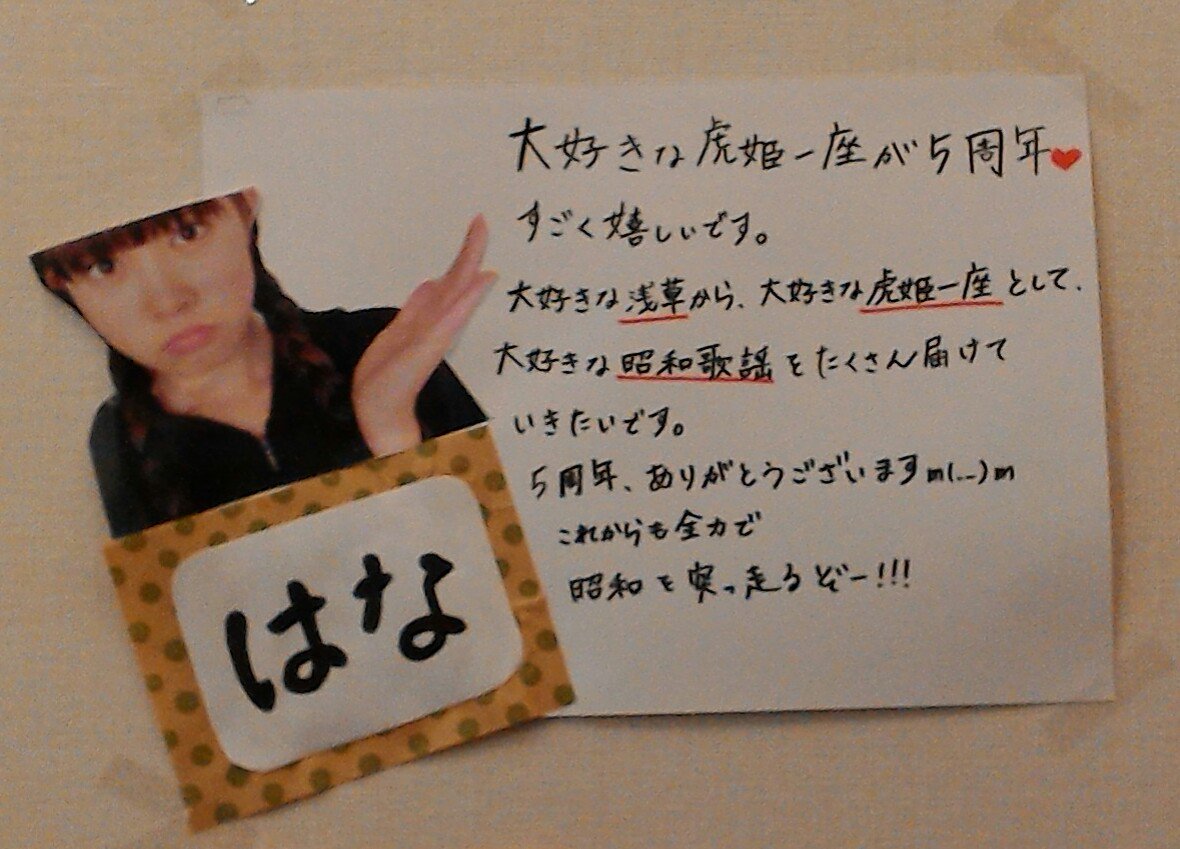 大好きな虎姫一座が5周年♥
すごく嬉しいです。
大好きな浅草から、大好きな虎姫一座として、
大好きな昭和歌謡をたくさん届けて
いきたいです。
5周年、ありがとうございますm(__)m
これからも全力で
昭和を突っ走るぞー!!!
はな